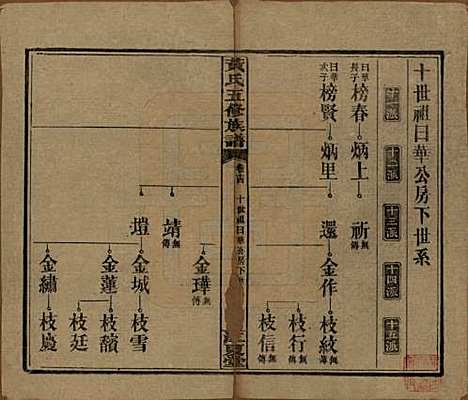 十世祖曰華公房下世系
十二派
十三派
十四派
十五派
曰華長子
榜春
炳上
祈
無傳
曰華次子
榜賢
炳里
還
金作
枝紋
無傳
枝行
無傳
枝信
無傳
黃氏五修族譜
卷十四
十世祖曰華公房下
江夏堂
金璍
無傳
靖
無傳
塏
金城
枝雪
金蓮
枝馥
枝廷
金繡
枝慶